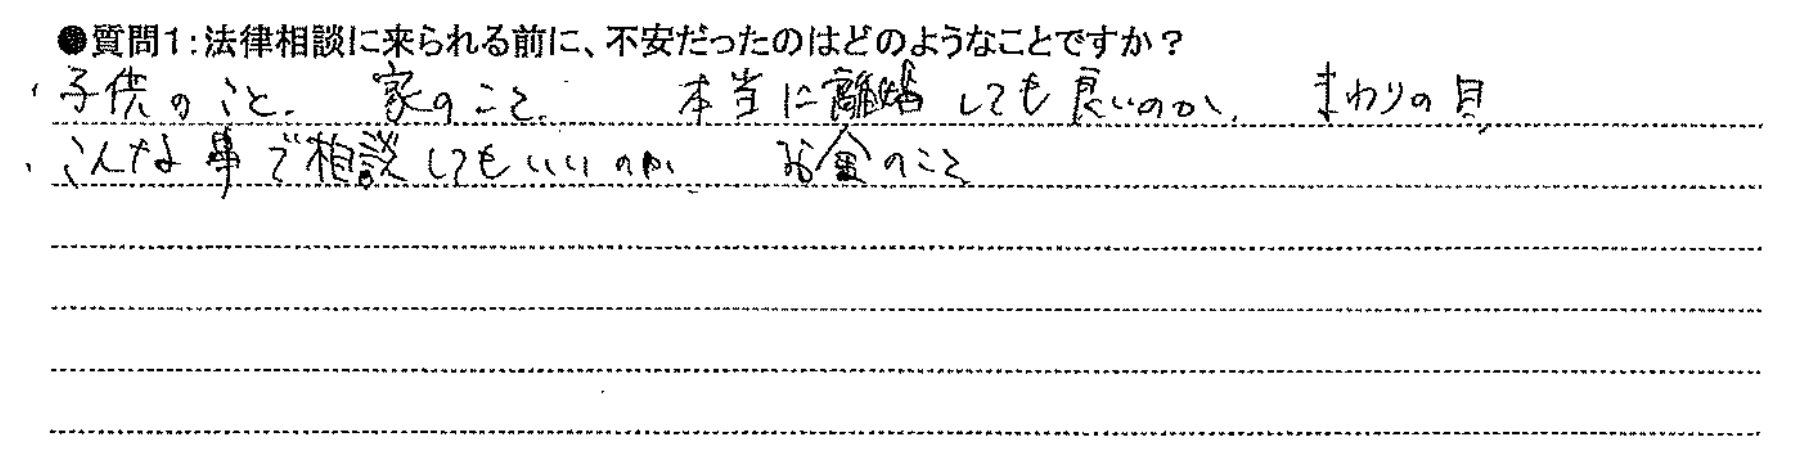 ●質問1:法律相談に来られる前に、不安だったのはどのようなことですか?
・子供のこと. 家のこと. 本当に離婚しても良いのか. まわりの目
・こんな事で相談してもいいのか. お金のこと